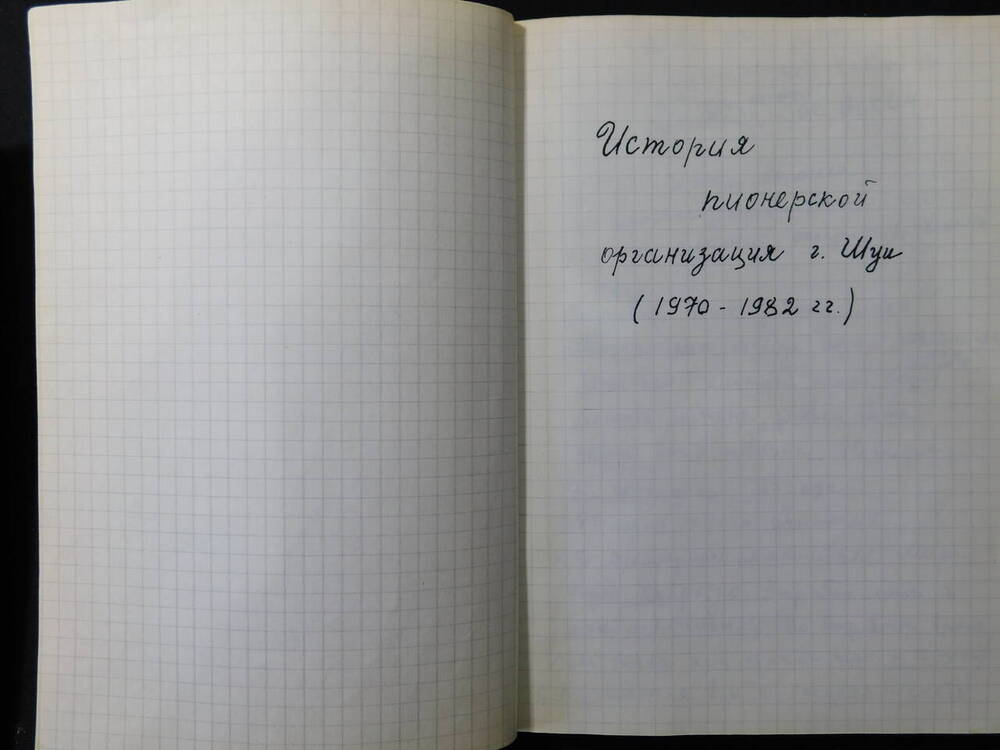 История
пионерской
организация г. Шуи
(1970 - 1982 гг.)